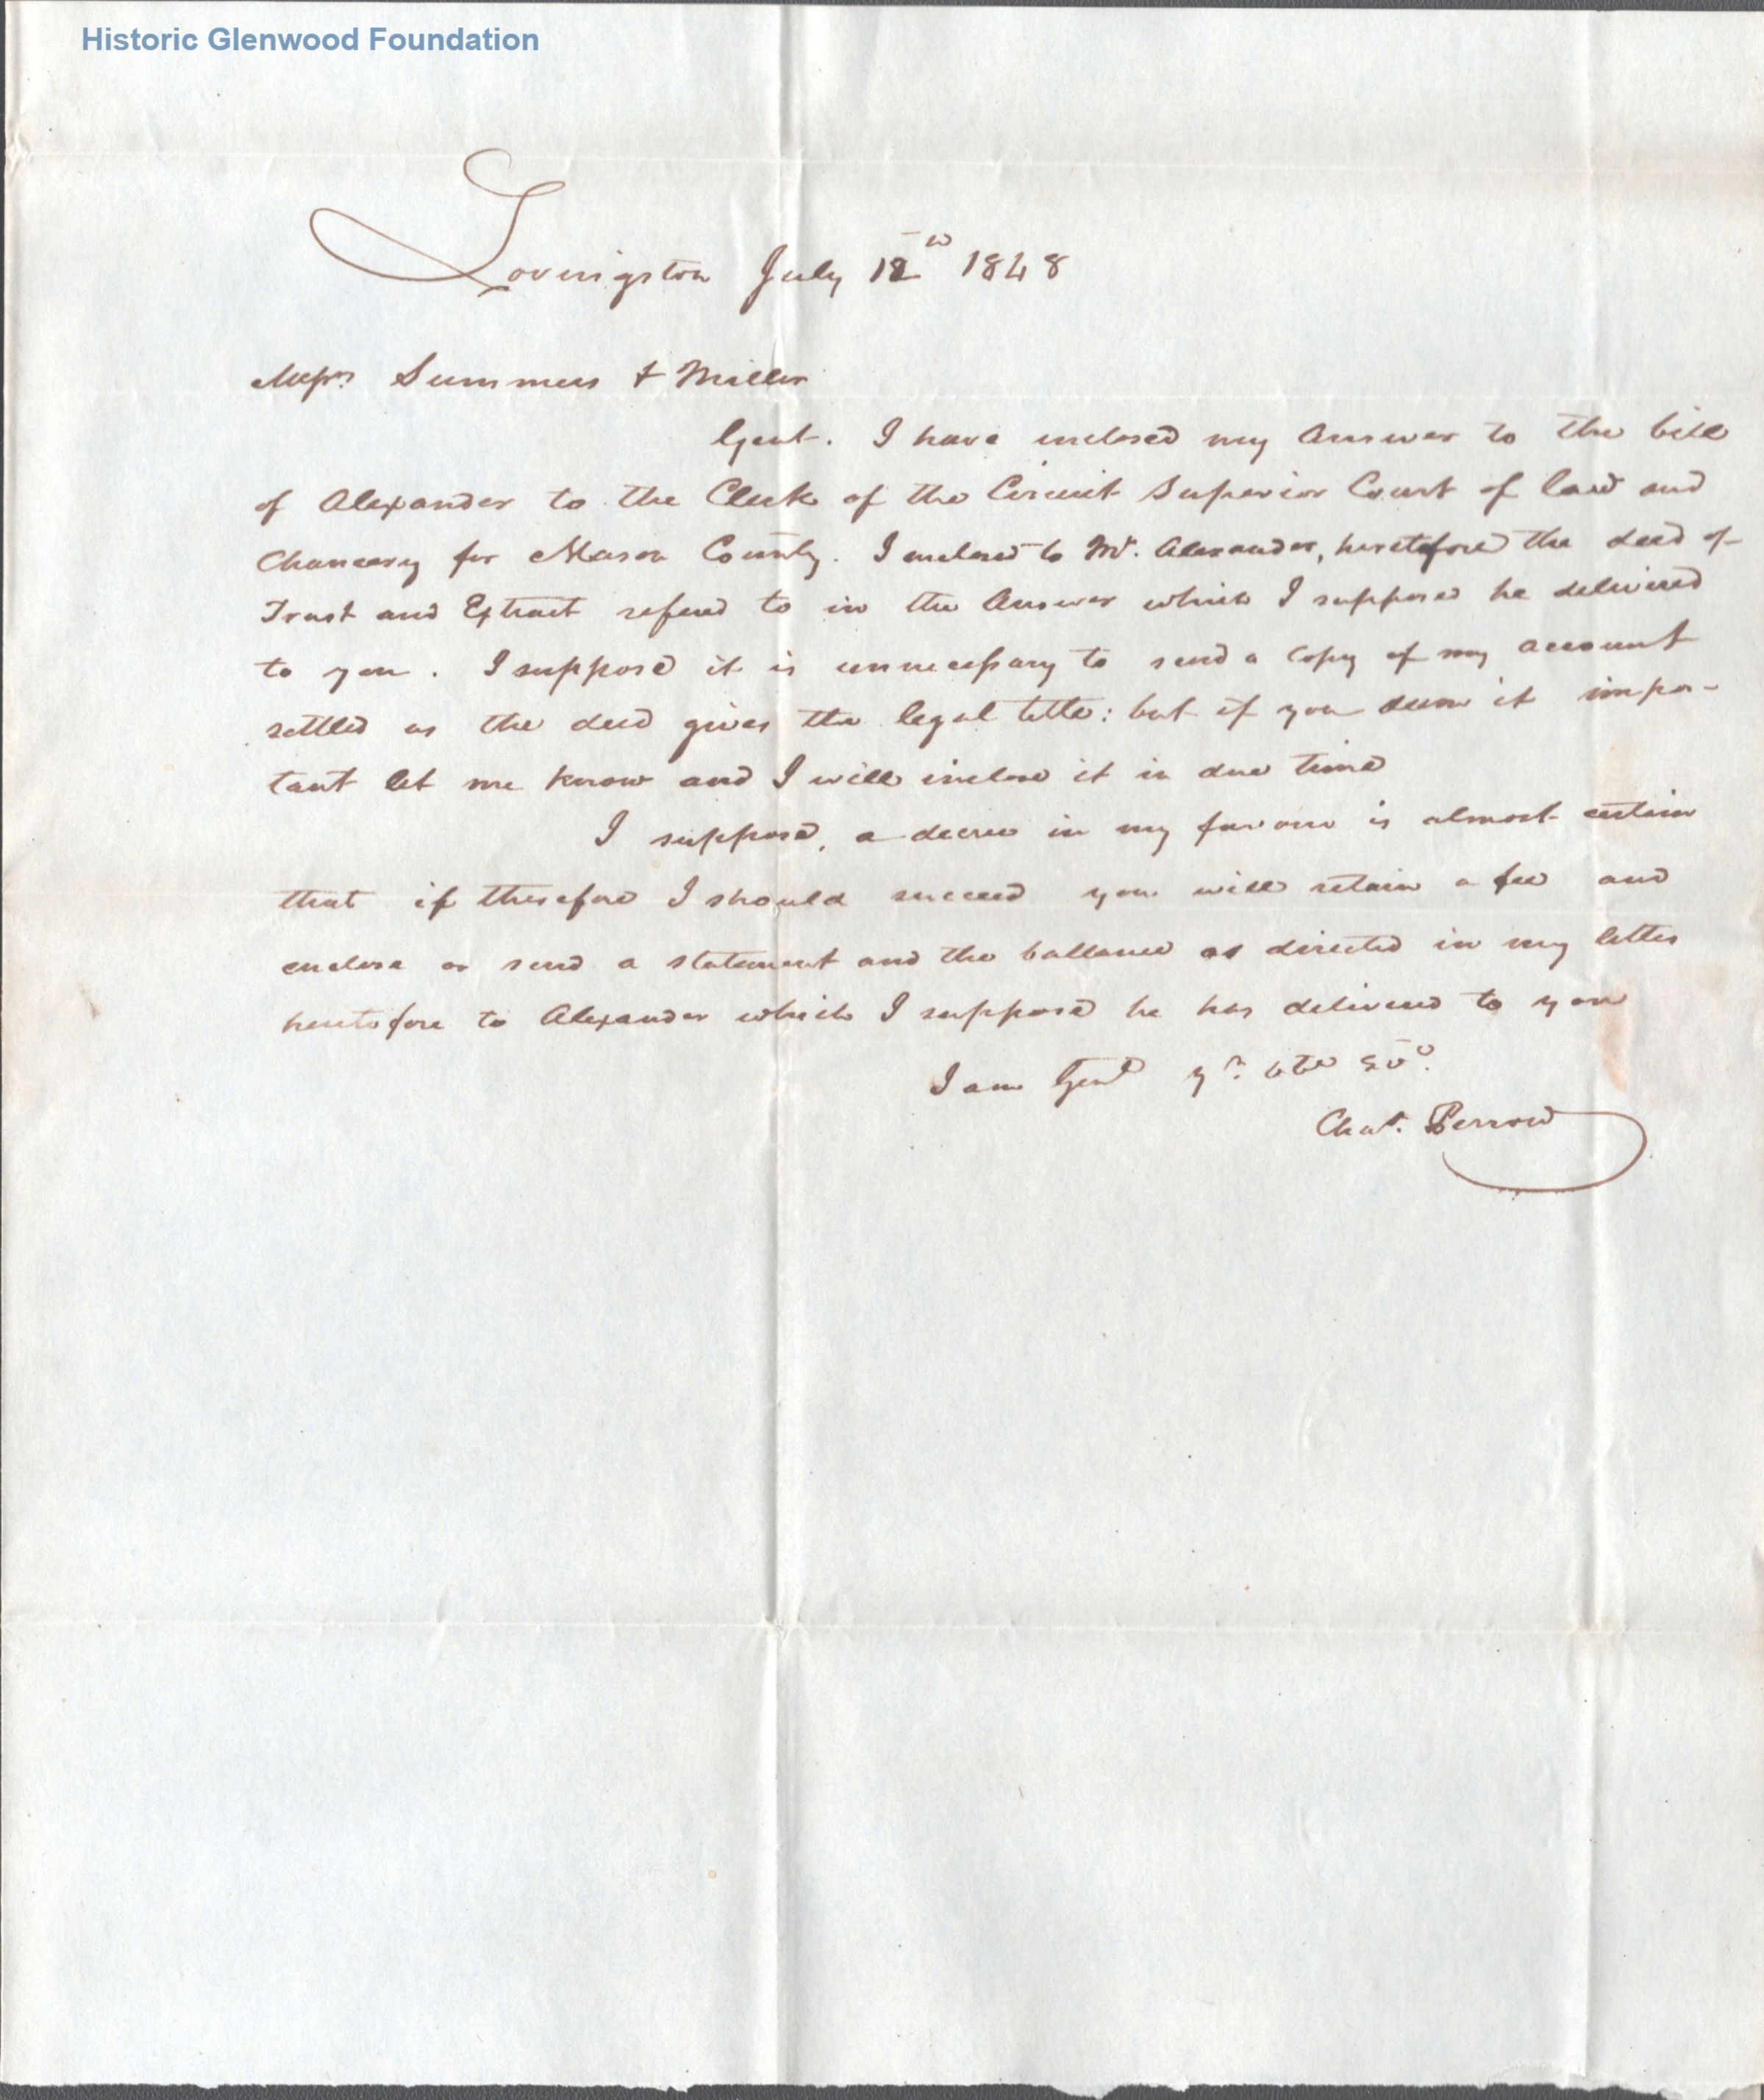 Historic Glenwood Foundation
Lovingston July 12th 1848
Messrs Summers & Miller
Gent. I have inclosed my Answer to the bill
of Alexander to the Clerk of the Circuit Superior Court of law and
Chancery for Mason County. I inclosed to Mr. Alexander, heretofore the deed of
Trust and Extract refered to in the Answer which I suppose he delivered
to you. I suppose it is unnecessary to send a Copy of my account
settled as the deed gives the legal title: but if you deem it impor-
tant let me know and I will inclose it in due time
I suppose, a decree in my favour is almost certain
that if therefore I should succeed you will retain a fee and
enclose or send a statement and the ballance as directed in my letter
heretofore to Alexander which I suppose he has delivered to you
I am Gent yr.
Chas. Perrow